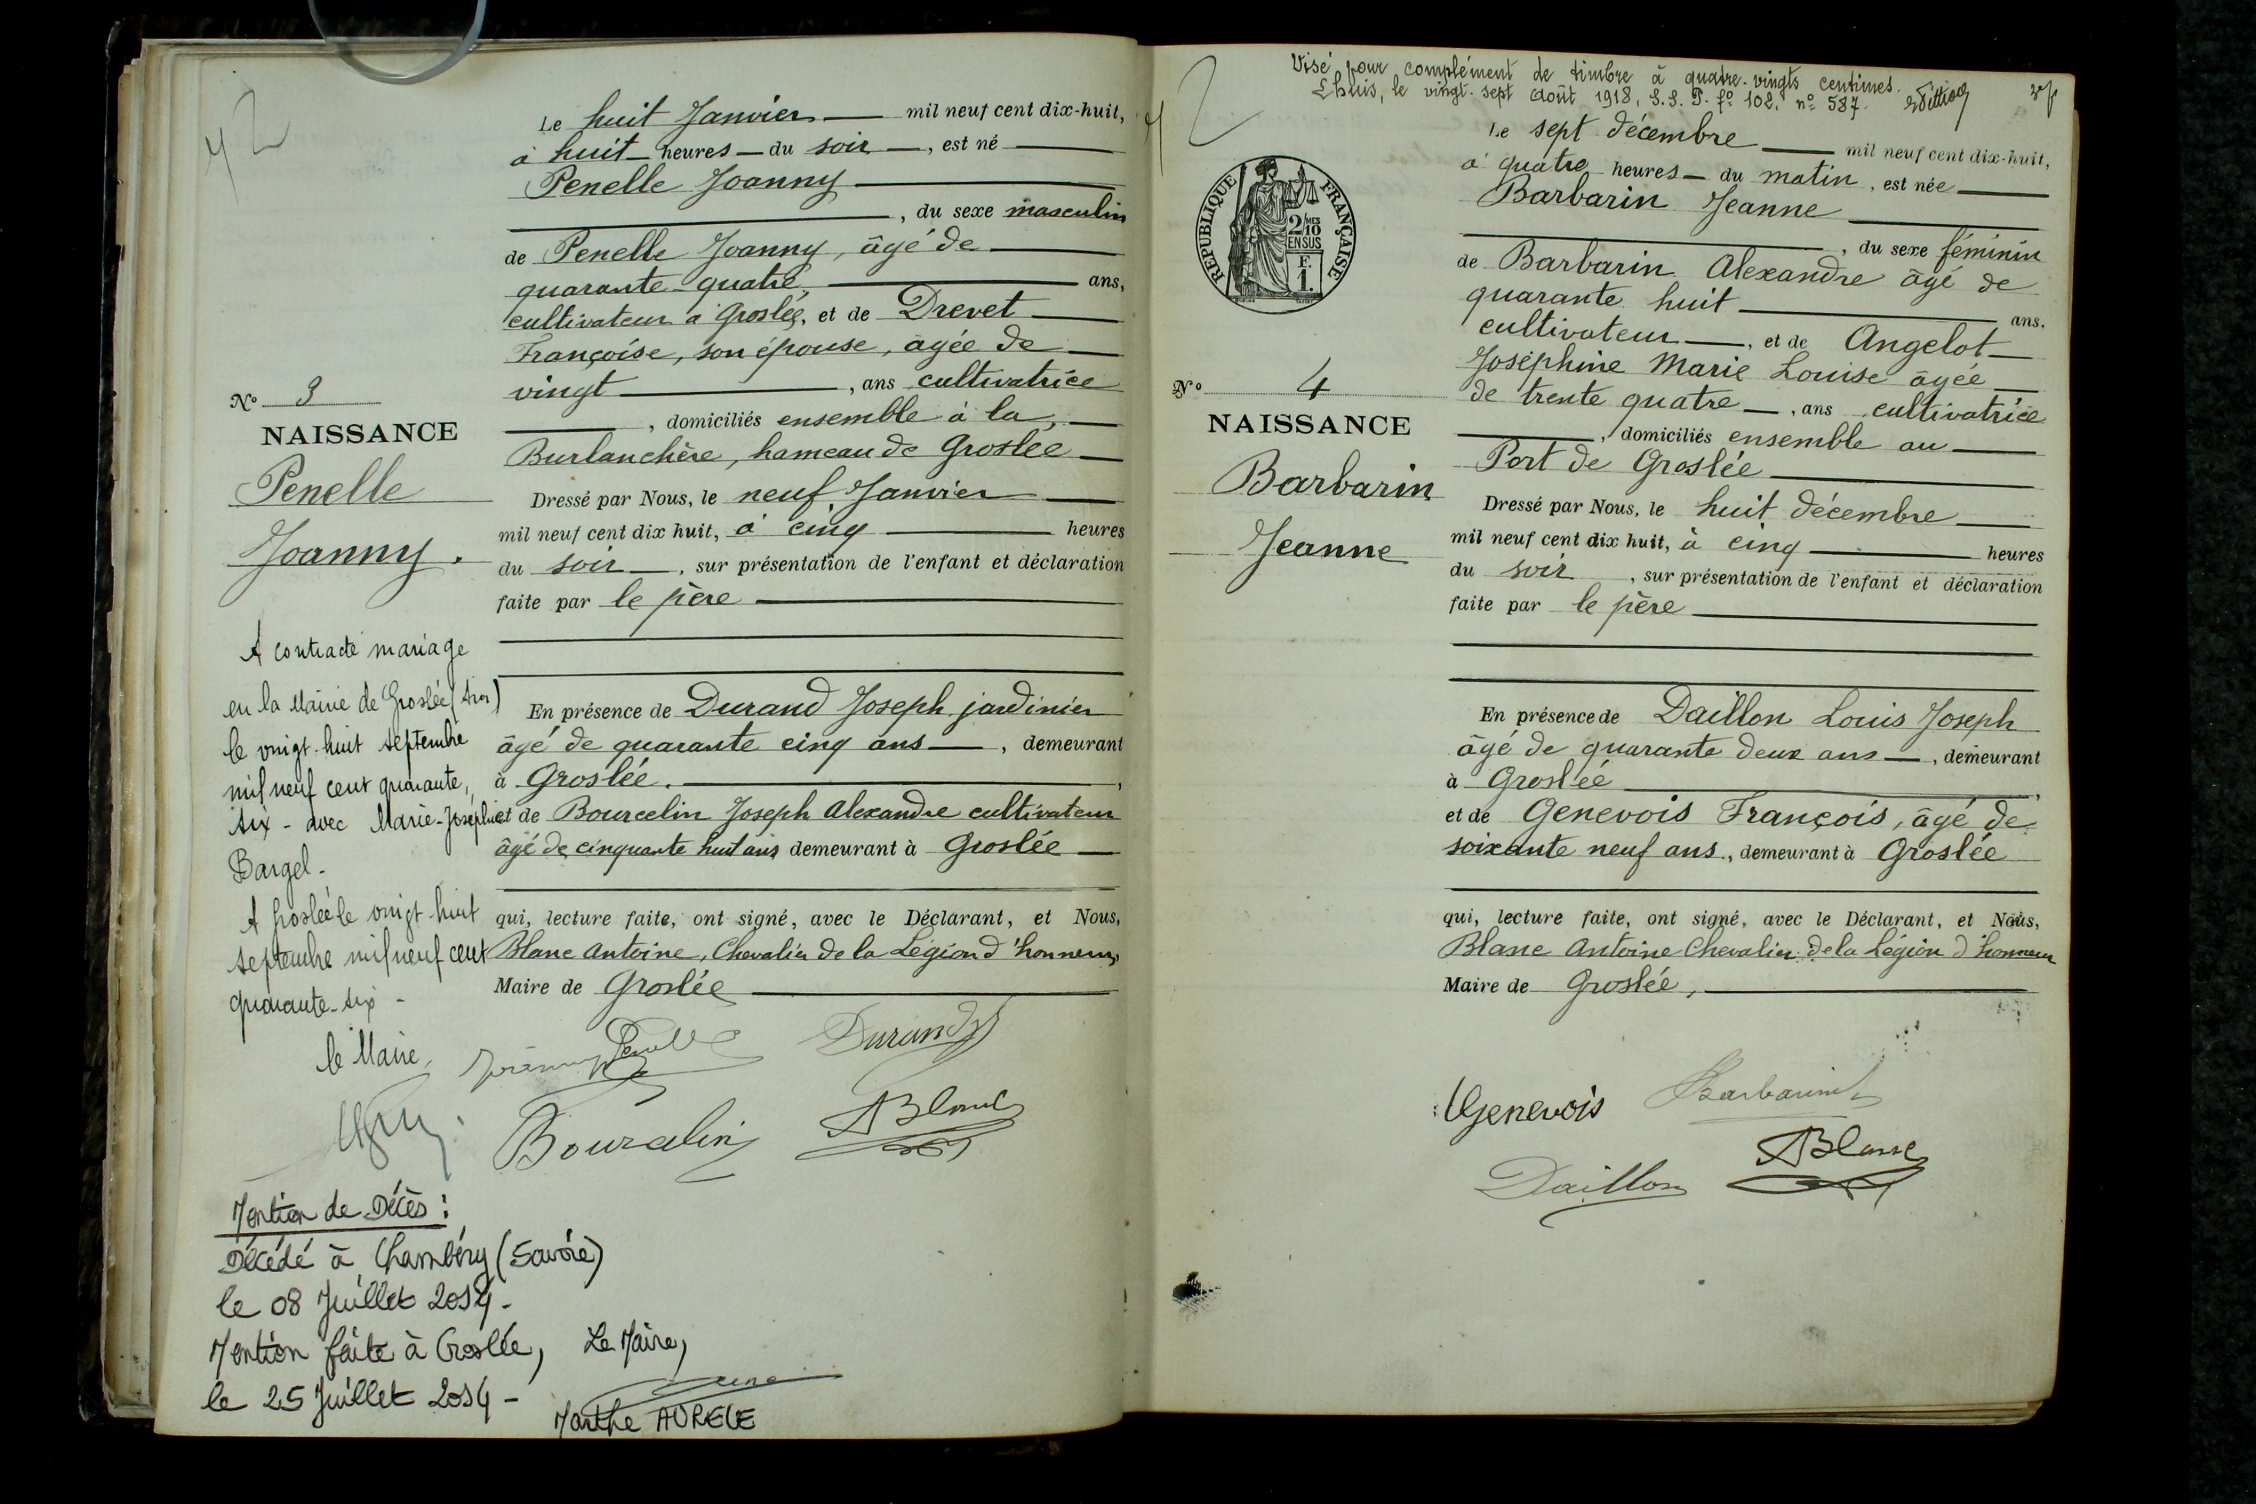 Le huit Janvier mil neuf cent dix-huit,
à huit heures du soir, est né
Penelle Joanny
, du sexe masculin
de Penelle Joanny, âgé de
quarante-quatre ans,
cultivateur à Groslée, et de Drevet
Françoise, son épouse, âgée de
vingt, ans cultivatrice
, domiciliés ensemble à la
Burlanchère, hameau de Groslée
Dressé par Nous, le neuf Janvier
mil neuf cent dix huit, à cinq heures
du soir, sur présentation de l'enfant et déclaration
faite par le père
En présence de Durand Joseph jardinier
âgé de quarante cinq ans, demeurant
à Groslée.
et de Bourcelin Joseph Alexandre cultivateur
âgé de cinquante huit ans demeurant à Groslée
qui, lecture faite, ont signé, avec le Déclarant, et Nous,
Blanc Antoine, Chevalier de la Légion d'honneur,
Maire de Groslée
Penelle
Durand
Bourcelin
ABlanc
No 3
NAISSANCE
Penelle
Joanny.
A contracté mariage
en la Mairie de Groslée (Ain)
le vingt-huit septembre
mil neuf cent quarante,
six - avec Marie-Joséphine
Bargel -
A Groslée le vingt-huit
septembre mil neuf cent
quarante-six -
le Maire,
Mention de Décès :
Décédé à Chambéry (Savoie)
le 08 Juillet 2014 -
Mention faite à Groslée, Le Maire,
le 25 Juillet 2014 -
Marthe AURELE
2
Visé pour complément de timbre à quatre-vingts centimes.
Lhuis, le vingt-sept Août 1918, S.S.P. fo 102, no 587.
RÉPUBLIQUE FRANÇAISE
2/10 MES
EN SUS
F.
1.
Le sept décembre mil neuf cent dix-huit,
à quatre heures du matin, est née
Barbarin Jeanne
, du sexe féminin
de Barbarin Alexandre âgé de
quarante huit ans,
cultivateur, et de Angelot
Joséphine Marie Louise âgée
de trente quatre, ans cultivatrice
, domiciliés ensemble au
Port de Groslée
Dressé par Nous, le huit décembre
mil neuf cent dix huit, à cinq heures
du soir, sur présentation de l'enfant et déclaration
faite par le père
En présence de Daillon Louis Joseph
âgé de quarante deux ans, demeurant
à Groslée
et de Genevois François, âgé de
soixante neuf ans, demeurant à Groslée
qui, lecture faite, ont signé, avec le Déclarant, et Nous,
Blanc Antoine Chevalier de la Légion d'honneur
Maire de Groslée,
Genevois
Barbarin
Daillon
ABlanc
No 4
NAISSANCE
Barbarin
Jeanne